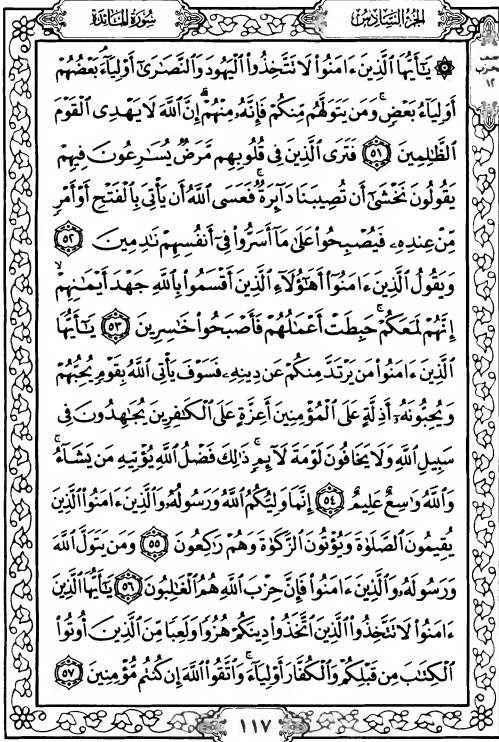 سُورَةُ المَائدة
الجزء السَّادس
نصف
الحزب
١٢
۞ يَٰٓأَيُّهَا ٱلَّذِينَ ءَامَنُوا۟ لَا تَتَّخِذُوا۟ ٱلْيَهُودَ وَٱلنَّصَٰرَىٰٓ أَوْلِيَآءَ ۘ بَعْضُهُمْ
أَوْلِيَآءُ بَعْضٍ ۚ وَمَن يَتَوَلَّهُم مِّنكُمْ فَإِنَّهُۥ مِنْهُمْ ۗ إِنَّ ٱللَّهَ لَا يَهْدِى ٱلْقَوْمَ
ٱلظَّٰلِمِينَ ٥١ فَتَرَى ٱلَّذِينَ فِى قُلُوبِهِم مَّرَضٌ يُسَٰرِعُونَ فِيهِمْ
يَقُولُونَ نَخْشَىٰٓ أَن تُصِيبَنَا دَآئِرَةٌ ۚ فَعَسَى ٱللَّهُ أَن يَأْتِىَ بِٱلْفَتْحِ أَوْ أَمْرٍ
مِّنْ عِندِهِۦ فَيُصْبِحُوا۟ عَلَىٰ مَآ أَسَرُّوا۟ فِىٓ أَنفُسِهِمْ نَٰدِمِينَ ٥٢
وَيَقُولُ ٱلَّذِينَ ءَامَنُوٓا۟ أَهَٰٓؤُلَآءِ ٱلَّذِينَ أَقْسَمُوا۟ بِٱللَّهِ جَهْدَ أَيْمَٰنِهِمْ ۙ
إِنَّهُمْ لَمَعَكُمْ ۚ حَبِطَتْ أَعْمَٰلُهُمْ فَأَصْبَحُوا۟ خَٰسِرِينَ ٥٣ يَٰٓأَيُّهَا
ٱلَّذِينَ ءَامَنُوا۟ مَن يَرْتَدَّ مِنكُمْ عَن دِينِهِۦ فَسَوْفَ يَأْتِى ٱللَّهُ بِقَوْمٍ يُحِبُّهُمْ
وَيُحِبُّونَهُۥٓ أَذِلَّةٍ عَلَى ٱلْمُؤْمِنِينَ أَعِزَّةٍ عَلَى ٱلْكَٰفِرِينَ يُجَٰهِدُونَ فِى
سَبِيلِ ٱللَّهِ وَلَا يَخَافُونَ لَوْمَةَ لَآئِمٍ ۚ ذَٰلِكَ فَضْلُ ٱللَّهِ يُؤْتِيهِ مَن يَشَآءُ ۚ
وَٱللَّهُ وَٰسِعٌ عَلِيمٌ ٥٤ إِنَّمَا وَلِيُّكُمُ ٱللَّهُ وَرَسُولُهُۥ وَٱلَّذِينَ ءَامَنُوا۟ ٱلَّذِينَ
يُقِيمُونَ ٱلصَّلَوٰةَ وَيُؤْتُونَ ٱلزَّكَوٰةَ وَهُمْ رَٰكِعُونَ ٥٥ وَمَن يَتَوَلَّ ٱللَّهَ
وَرَسُولَهُۥ وَٱلَّذِينَ ءَامَنُوا۟ فَإِنَّ حِزْبَ ٱللَّهِ هُمُ ٱلْغَٰلِبُونَ ٥٦ يَٰٓأَيُّهَا ٱلَّذِينَ
ءَامَنُوا۟ لَا تَتَّخِذُوا۟ ٱلَّذِينَ ٱتَّخَذُوا۟ دِينَكُمْ هُزُوًا وَلَعِبًا مِّنَ ٱلَّذِينَ أُوتُوا۟
ٱلْكِتَٰبَ مِن قَبْلِكُمْ وَٱلْكُفَّارَ أَوْلِيَآءَ ۚ وَٱتَّقُوا۟ ٱللَّهَ إِن كُنتُم مُّؤْمِنِينَ ٥٧
١١٧